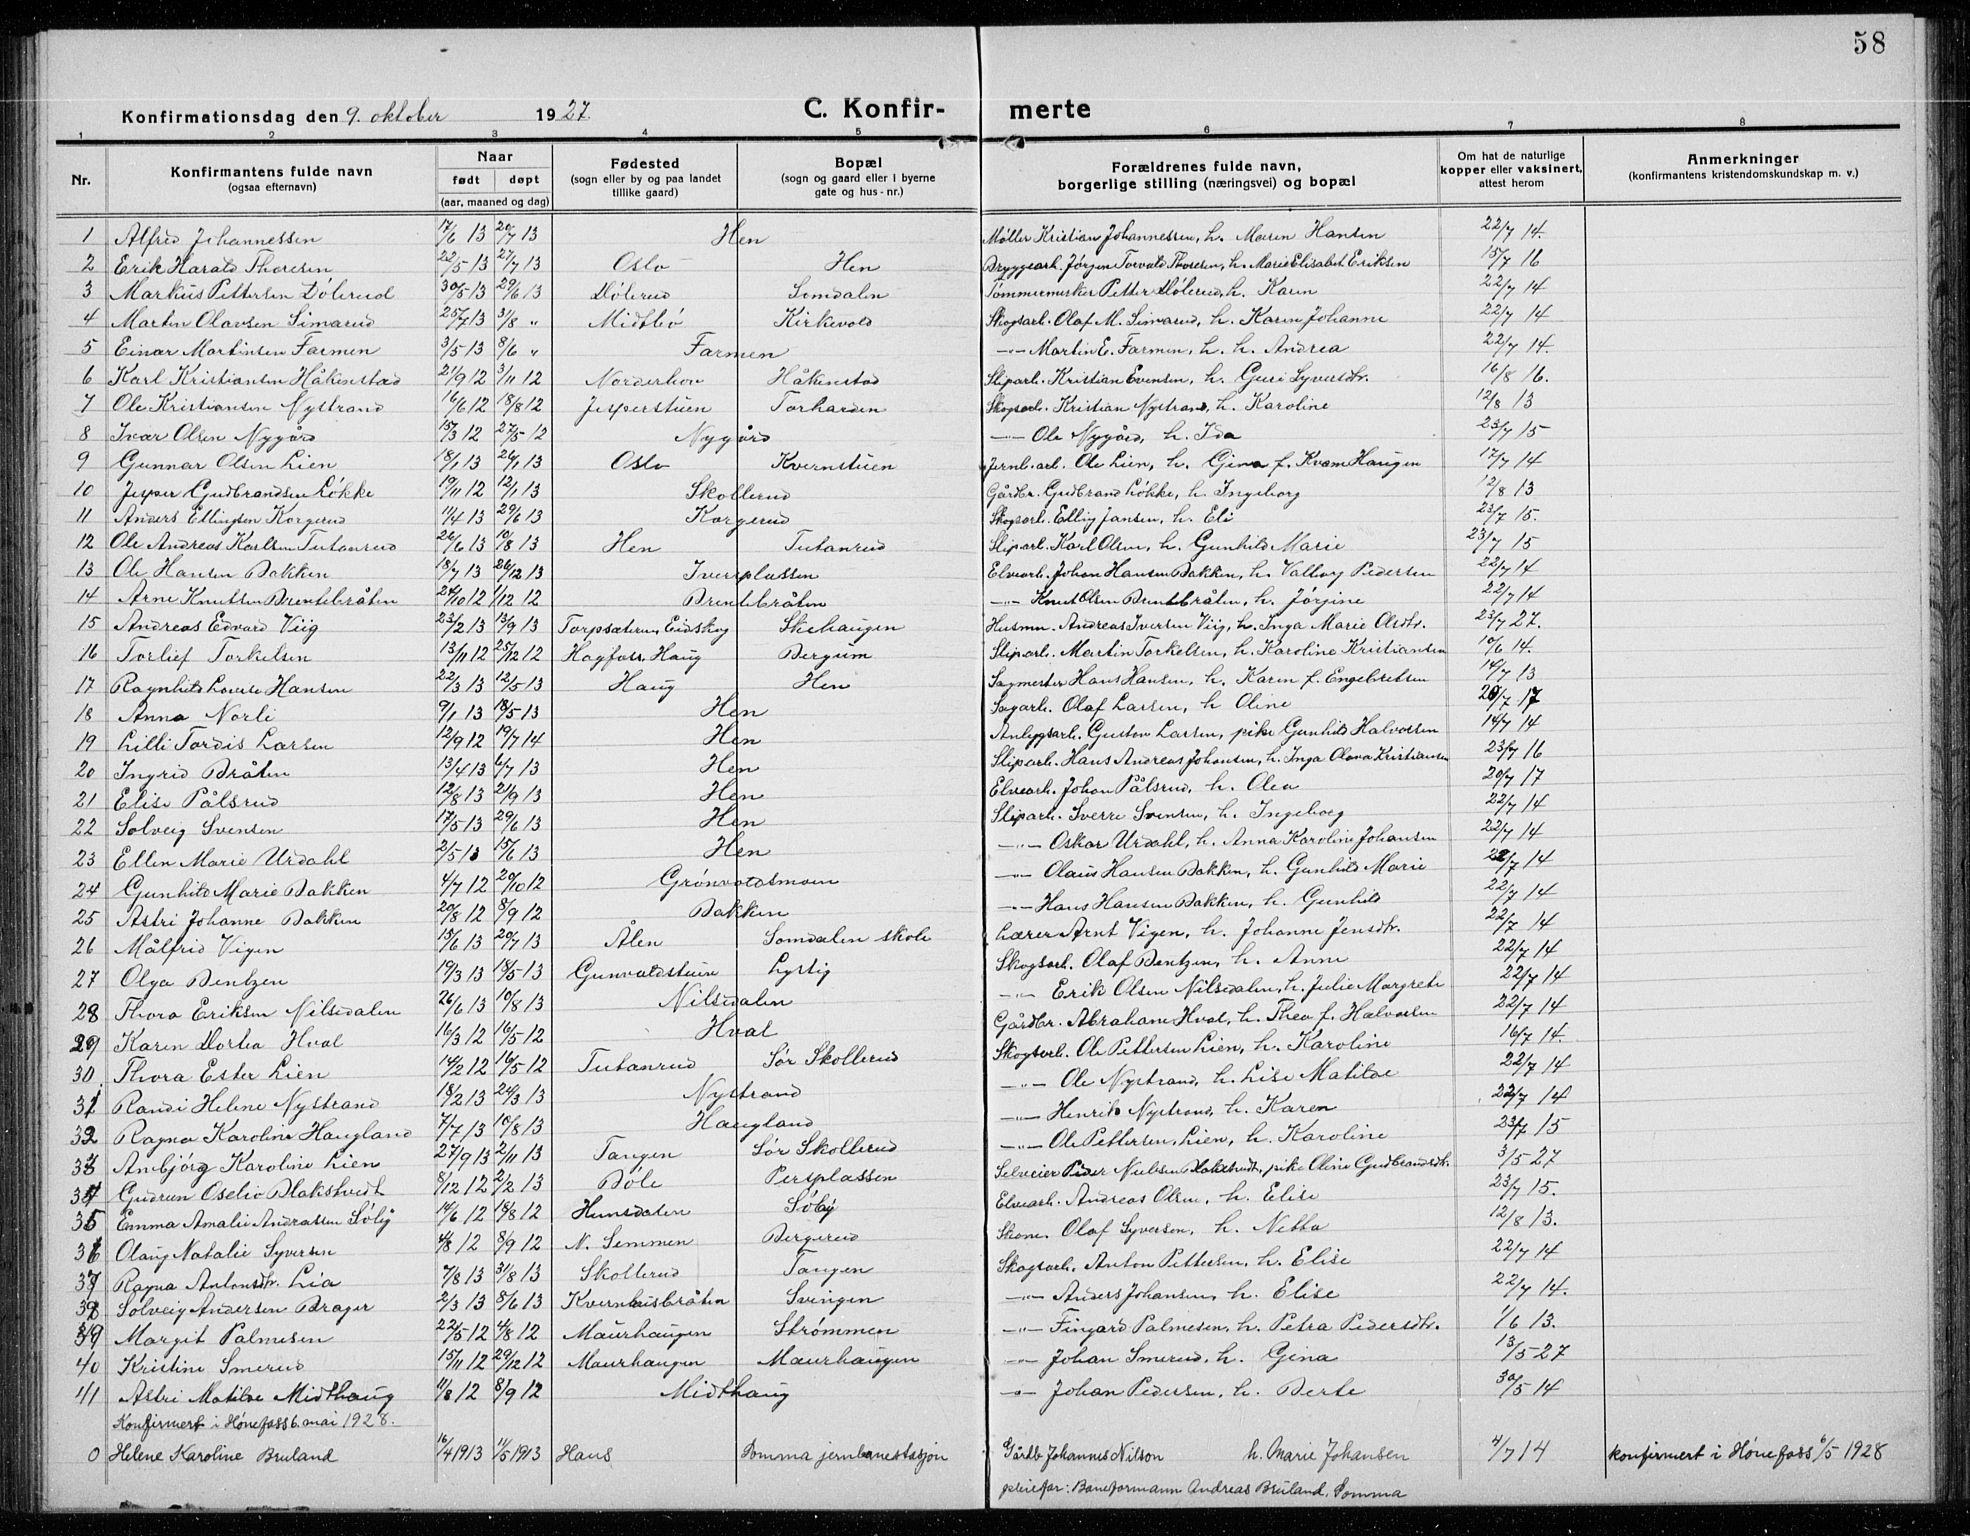 58
Konfirmationsdag den 9. oktober 1927. C. Konfir- merte
1 2 3 4 5 6 7 8
Nr. Konfirmantens fulde navn (ogsaa efternavn) Naar født døpt (aar, maaned og dag) Fødested (sogn eller by og paa landet tillike gaard) Bopæl (sogn og gaard eller i byerne gate og hus-nr.) Forældrenes fulde navn, borgerlige stilling (næringsvei) og bopæl Om hat de naturlige kopper eller vaksinert, attest herom Anmerkninger (konfirmantens kristendomskundskap m. v.)
1 Alfred Johannessen 17/6 13 20/7 13 Hen Møller Kristian Johannessen, h. Maren Hansen 22/7 14.
2 Erik Harald Thoresen 22/5 13 27/7 13 Oslo Hen Bryggearb. Jørgen Torvald Thoresen, h. Marie Elisabet Eriksen 15/7 16
3 Markus Pettersen Dølerud 30/5 13 29/6 13 Dølerud Somdalen Tømmermerker Petter Dølerud, h. Karen 22/7 14
4 Martin Olavsen Simarud 25/7 13 3/8 " Midtbø Kirkevold Skogsarb. Olaf M. Simarud, h. Karen Johanne 22/7 14
5 Einar Martinsen Farmen 3/5 13 8/6 " Farmen —"— Martin E. Farmen, h. h. Andrea 22/7 14.
6 Karl Kristiansen Håkenstad 21/9 12 3/11 12 Norderhov Håkenstad Sliparb. Kristian Evensen, h. Guri Syversdtr. 16/8 16.
7 Ole Kristiansen Nystrand 16/6 12 18/8 12 Jesperstuen Torharden Skogsarb. Kristian Nystrand, h. Karoline 12/8 13
8 Ivar Olsen Nygård 15/3 12 27/5 12 Nygård —"— Ole Nygård, h. Ida 23/7 15
9 Gunnar Olsen Lien 18/1 13 26/1 13 Oslo Kvernstuen Jernb.arb. Ole Lien, h. Gina f. Kvam Haugen 17/7 14
10 Jesper Gudbrandsen Løkke 19/11 12 12/1 13 Skollerud Gårdbr. Gudbrand Løkke, h. Ingeborg 12/8 13
11 Anders Ellingsen Korgerud 11/4 13 29/6 13 Korgerud Skogsarb. Elling Jansen, h. Eli 23/7 15.
12 Ole Andreas Karlsen Tutanrud 26/6 13 10/8 13 Hen Tutanrud Sliparb. Karl Olsen, h. Gunhild Marie 23/7 15
13 Ole Hansen Bakken 18/7 13 26/12 13 Iversplassen Elvearb. Johan Hansen Bakken, h. Valborg Pedersen 22/7 14
14 Arne Knutsen Brentebråten 24/10 12 1/12 12 Brentebråten —"— Knut Olsen Brentebråten, h. Jørgine 22/7 14
15 Andreas Edvard Viig 23/2 13 13/9 13 Torpsæteren, Eidskog Skehaugen Husmn. Andreas Iversen Viig, h. Inga Marie Olsdtr. 23/7 27.
16 Torlief Torkelsen 13/11 12 25/12 12 Hagfoss, Haug Bergum Sliparb. Martin Torkelsen, h. Karoline Kristiansen 10/6 14.
17 Ragnhild Lovise Hansen 22/3 13 12/5 13 Haug Hen Sagmester Hans Hansen, h. Karen f. Engebretsen 14/7 13
18 Anna Norli 9/1 13 18/5 13 Hen Sagarb. Olaf Larsen, h Oline 20/7 17
19 Lilli Tordis Larsen 12/9 12 19/7 14 Hen Anlegsarb. Gustav Larsen, pike Gunhild Halvorsen 14/7 14
20 Ingrid Bråten 13/4 13 6/7 13 Hen Sliparb. Hans Andreas Johansen, h. Inga Olava Kristiansen 23/7 16
21 Elise Pålsrud 12/8 13 21/9 13 Hen Elvearb. Johan Pålsrud, h. Olea 20/7 17
22 Solveig Svensen 17/5 13 29/6 13 Hen Sliparb. Sverre Svensen, h. Ingeborg 22/7 14
23 Ellen Marie Urdahl 2/5 13 15/6 13 Hen —"— Oskar Urdahl, h. Anna Karoline Johansen 22/7 14
24 Gunhild Marie Bakken 4/7 12 20/10 12 Grønvoldsmoen —"— Olaus Hansen Bakken, h. Gunhild Marie 22/7 14
25 Astri Johanne Bakken 20/8 12 8/9 12 Bakken —"— Hans Hansen Bakken, h. Gunhild 22/7 14
26 Målfrid Vigen 15/6 13 20/7 13 Ålen Somdalen skole Lærer Arnt Vigen, h. Johanne Jensdtr. 22/7 14
27 Olga Bentzen 19/3 13 18/5 13 Gunvaldstuen Lystig Skogsarb. Olaf Bentzen, h. Anne 22/7 14
28 Thora Eriksen Nilsedalen 26/6 13 10/8 13 Nilsedalen —"— Erik Olsen Nilsedalen, h. Julie Margrete 22/7 14
29 Karen Dortea Hval 16/3 12 16/5 12 Hval Gårdbr. Abraham Hval, h. Thea f. Halvorsen 22/7 14
30. Thora Ester Lien 14/2 12 16/5 12 Tutanrud Sør Skollerud Skogsarb. Ole Pettersen Lien, h. Karoline 16/7 14.
31 Randi Helene Nystrand 18/2 13 24/3 13 Nystrand —"— Ole Nystrand, h. Lise Matilde 22/7 14
32 Ragna Karoline Haugland 7/7 13 10/8 13 Haugland —"— Henrik Nystrand, h. Karen 22/7 14
33 Anbjørg Karoline Lien 27/9 13 2/11 13 Tangen Sør Skollerud —"— Ole Pettersen Lien, h. Karoline 23/7 15
34 Gudrun Oselio Blakstvedt 8/12 12 2/2 13 Bøle Persplassen Selveier Peder Nielsen Blakstvedt, pike Oline Gudbrandsdtr. 3/5 27
35 Emma Amalie Andreassen Søby 14/6 12 18/8 12 Hunsdalen Søby Elvearb. Andreas Olsen, h. Elise 23/7 15.
36 Olaug Natalie Syversen 4/8 12 8/9 12 N. Semmen Bergerud Skom. Olaf Syversen, h. Netta 12/8 13.
37 Ragna Antonsdtr. Lia 7/8 13 31/8 13 Skollerud Tangen Skogsarb. Anton Pettersen, h. Elise 22/7 14
38 Solveig Andersen Brager 2/3 13 8/6 13 Kvernhusbråten Svingen —"— Anders Johansen, h. Elise 22/7 14.
39 Margit Palmesen 22/5 12 4/8 12 Maurhaugen Strømmen —"— Fingard Palmesen, h. Petra Pedersdtr. 1/6 13.
40 Kristine Smerud 15/11 12 29/12 12 Maurhaugen Maurhaugen —"— Johan Smerud, h. Gina 13/5 27
41 Astri Matilde Midthaug 11/8 12 8/9 12 Midthaug —"— Johan Pedersen, h. Berte 30/5 14
Konfirmert i Hønefoss 6. mai 1928.
0 Helene Karoline Bruland 16/4 1913 11/5 1913 Haus Somma jernbanestasjon Gårdb Johannes Nilson h. Marie Johansen 4/7 14 konfirmert i Hønefoss 6/5 1928
pleiefar: Baneformann Andreas Bruland, Somma